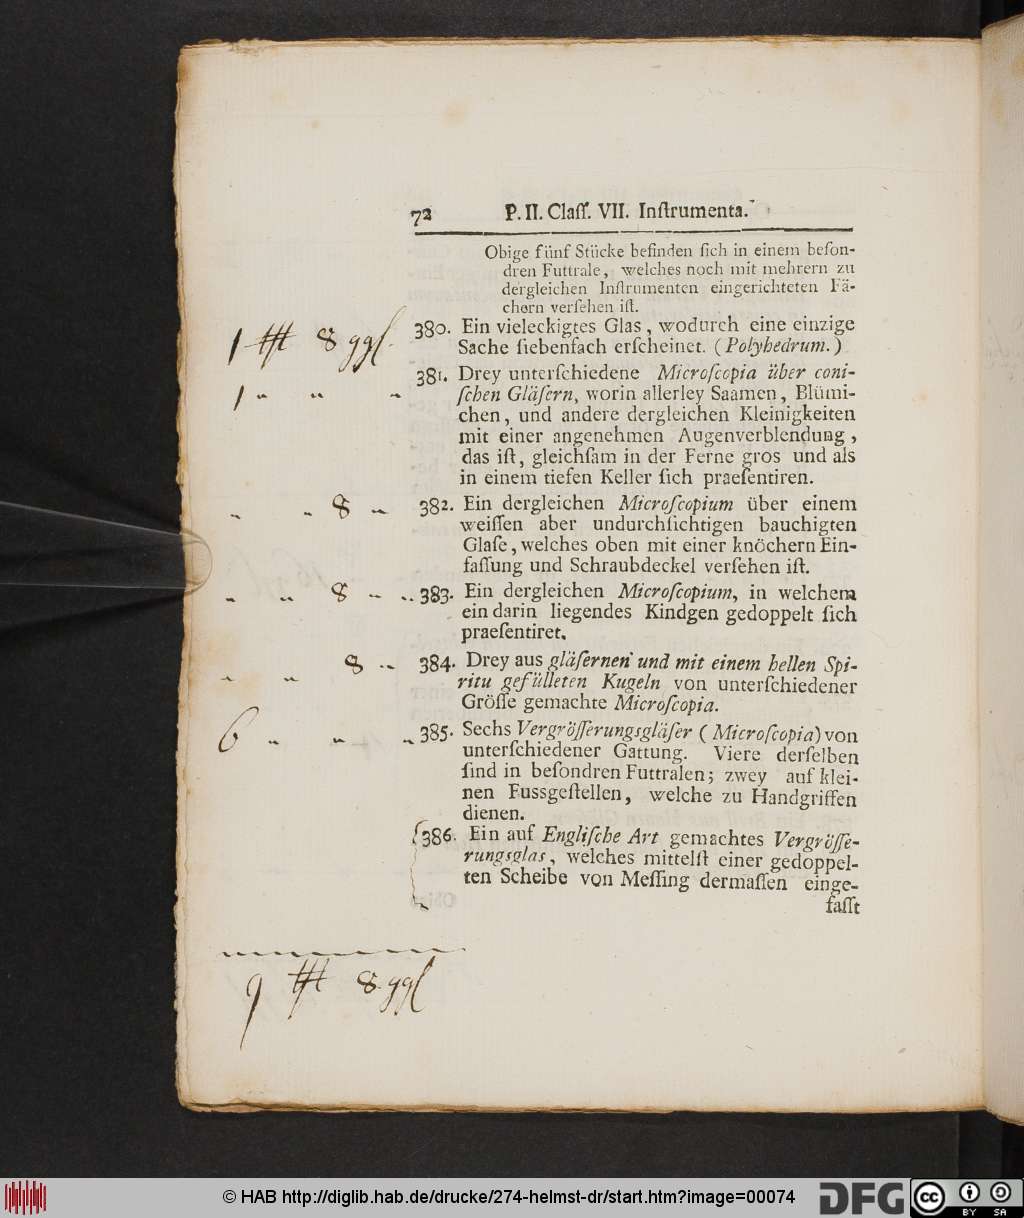 72 P. II. Claſſ. VII. Inſtrumenta.
Obige fünf Stücke befinden ſich in einem beſon-
dren Futtrale, welches noch mit mehrern zu
dergleichen Inſtrumenten eingerichteten Fä-
chern verſehen iſt.
380. Ein vieleckigtes Glas, wodurch eine einzige
Sache ſiebenfach erſcheinet. (Polyhedrum.)
1 8 ggl
381. Drey unterſchiedene Microſcopia über coni-
ſchen Gläſern, worin allerley Saamen, Blümi-
1 " " "
chen, und andere dergleichen Kleinigkeiten
mit einer angenehmen Augenverblendung,
das iſt, gleichſam in der Ferne gros und als
in einem tiefen Keller ſich praeſentiren.
" " 8 " 382. Ein dergleichen Microſcopium über einem
weiſſen aber undurchſichtigen bauchigten
Glaſe, welches oben mit einer knöchern Ein-
faſſung und Schraubdeckel verſehen iſt.
" " 8 " " 383. Ein dergleichen Microſcopium, in welchem
ein darin liegendes Kindgen gedoppelt ſich
praeſentiret.
" " 8 " 384. Drey aus gläſernen und mit einem hellen Spi-
ritu gefülleten Kugeln von unterſchiedener
Gröſſe gemachte Microſcopia.
6 " " " 385. Sechs Vergröſſerungsgläſer (Microſcopia) von
unterſchiedener Gattung. Viere derſelben
ſind in beſondren Futtralen; zwey auf klei-
nen Fussgeſtellen, welche zu Handgriffen
dienen.
386. Ein auf Engliſche Art gemachtes Vergröſſe-
rungsglas, welches mittelſt einer gedoppel-
ten Scheibe von Meſſing dermaſſen einge-
faſſt
9 8 ggl
© HAB http://diglib.hab.de/drucke/274-helmst-dr/start.htm?image=00074
DFG
cc BY SA